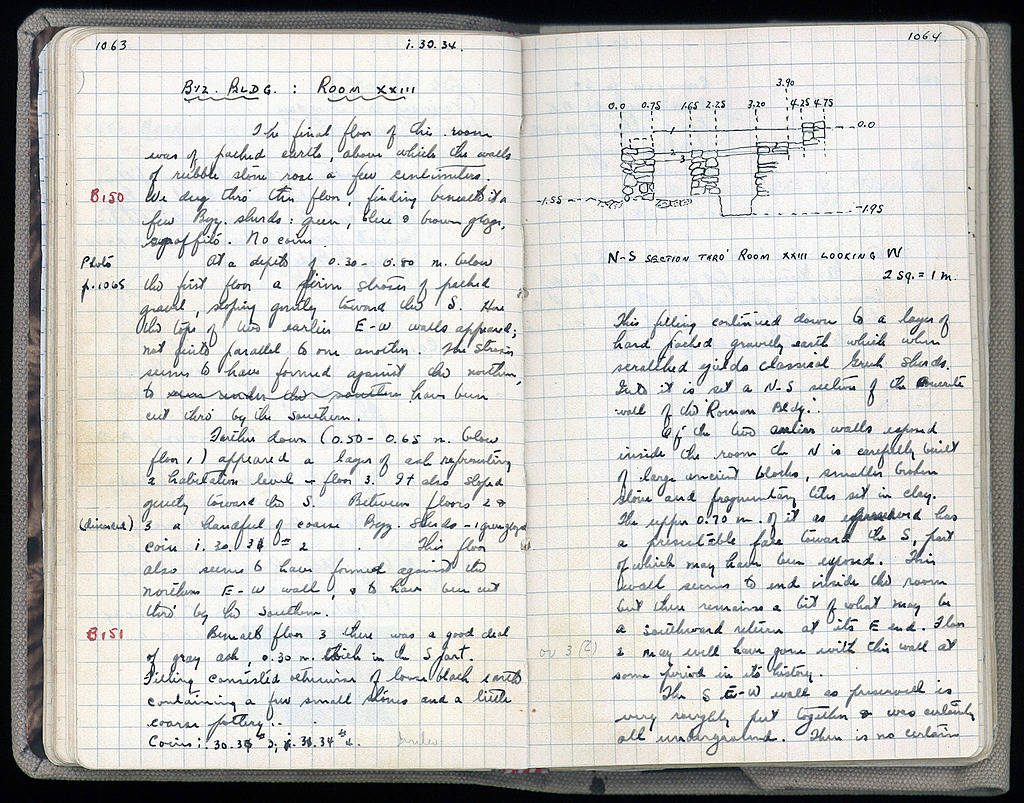 1063
i. 30. 34.
BYZ. BLDG. : ROOM XXIII
The final floor of this room
was of packed earth, above which the walls
of rubble stone rose a few centimeters.
B150
We dug thro this floor, finding beneath it a
few Byz. sherds: green, blue & brown glaze,
sgraffito. No coins.
Photo
p. 1065
At a depth of 0.30 - 0.80 m. below
the first floor a firm stroses of packed
gravel, sloping gently toward the S. Here
the tops of two earlier E-W walls appeared;
not quite parallel to one another. The stroses
seems to have formed against the northern,
to have been
cut thro' by the southern.
Farther down (0.50 - 0.65 m. below
floor 1) appeared a layer of ash representing
a habitation level - floor 3. It also sloped
gently toward the S. Between floors 2 &
(discarded)
3 a handful of coarse Byz. sherds - 1 green glazed
coin i. 30. 34 # 2 . This floor
also seems to have formed against the
northern E-W wall, & to have been cut
thro' by the southern.
B151
Beneath floor 3 there was a good deal
of gray ash, 0.30 m. thick in the S part.
Filling consisted otherwise of loose black earth
containing a few small stones and a little
coarse pottery.
Coins i. 30.34 # 3; i. 31.34 # 1.
1064
3.90
0.0 0.75 1.65 2.25 3.20 4.25 4.75
0.0
1
2
3
-1.55
-1.95
N-S SECTION THRO' ROOM XXIII LOOKING W
2 SQ. = 1 M.
This filling continued down to a layer of
hard packed gravelly earth which when
scratched yields classical Greek sherds.
Into it is set a N-S section of the concrete
wall of the "Roman Bldg."
Of the two earlier walls exposed
inside the room the N is carefully built
of large ancient blocks, smaller broken
stone and fragmentary tiles set in clay.
The upper 0.70 m. of it as preserved has
a presentable face toward the S, part
of which may have been exposed. This
wall seems to end inside the room
but there remains a bit of what may be
a southward return at its E end. Floor
or 3 (?)
2 may well have gone with this wall at
some period in its history.
The S E-W wall as preserved is
very roughly put together & was certainly
all underground. There is no certain